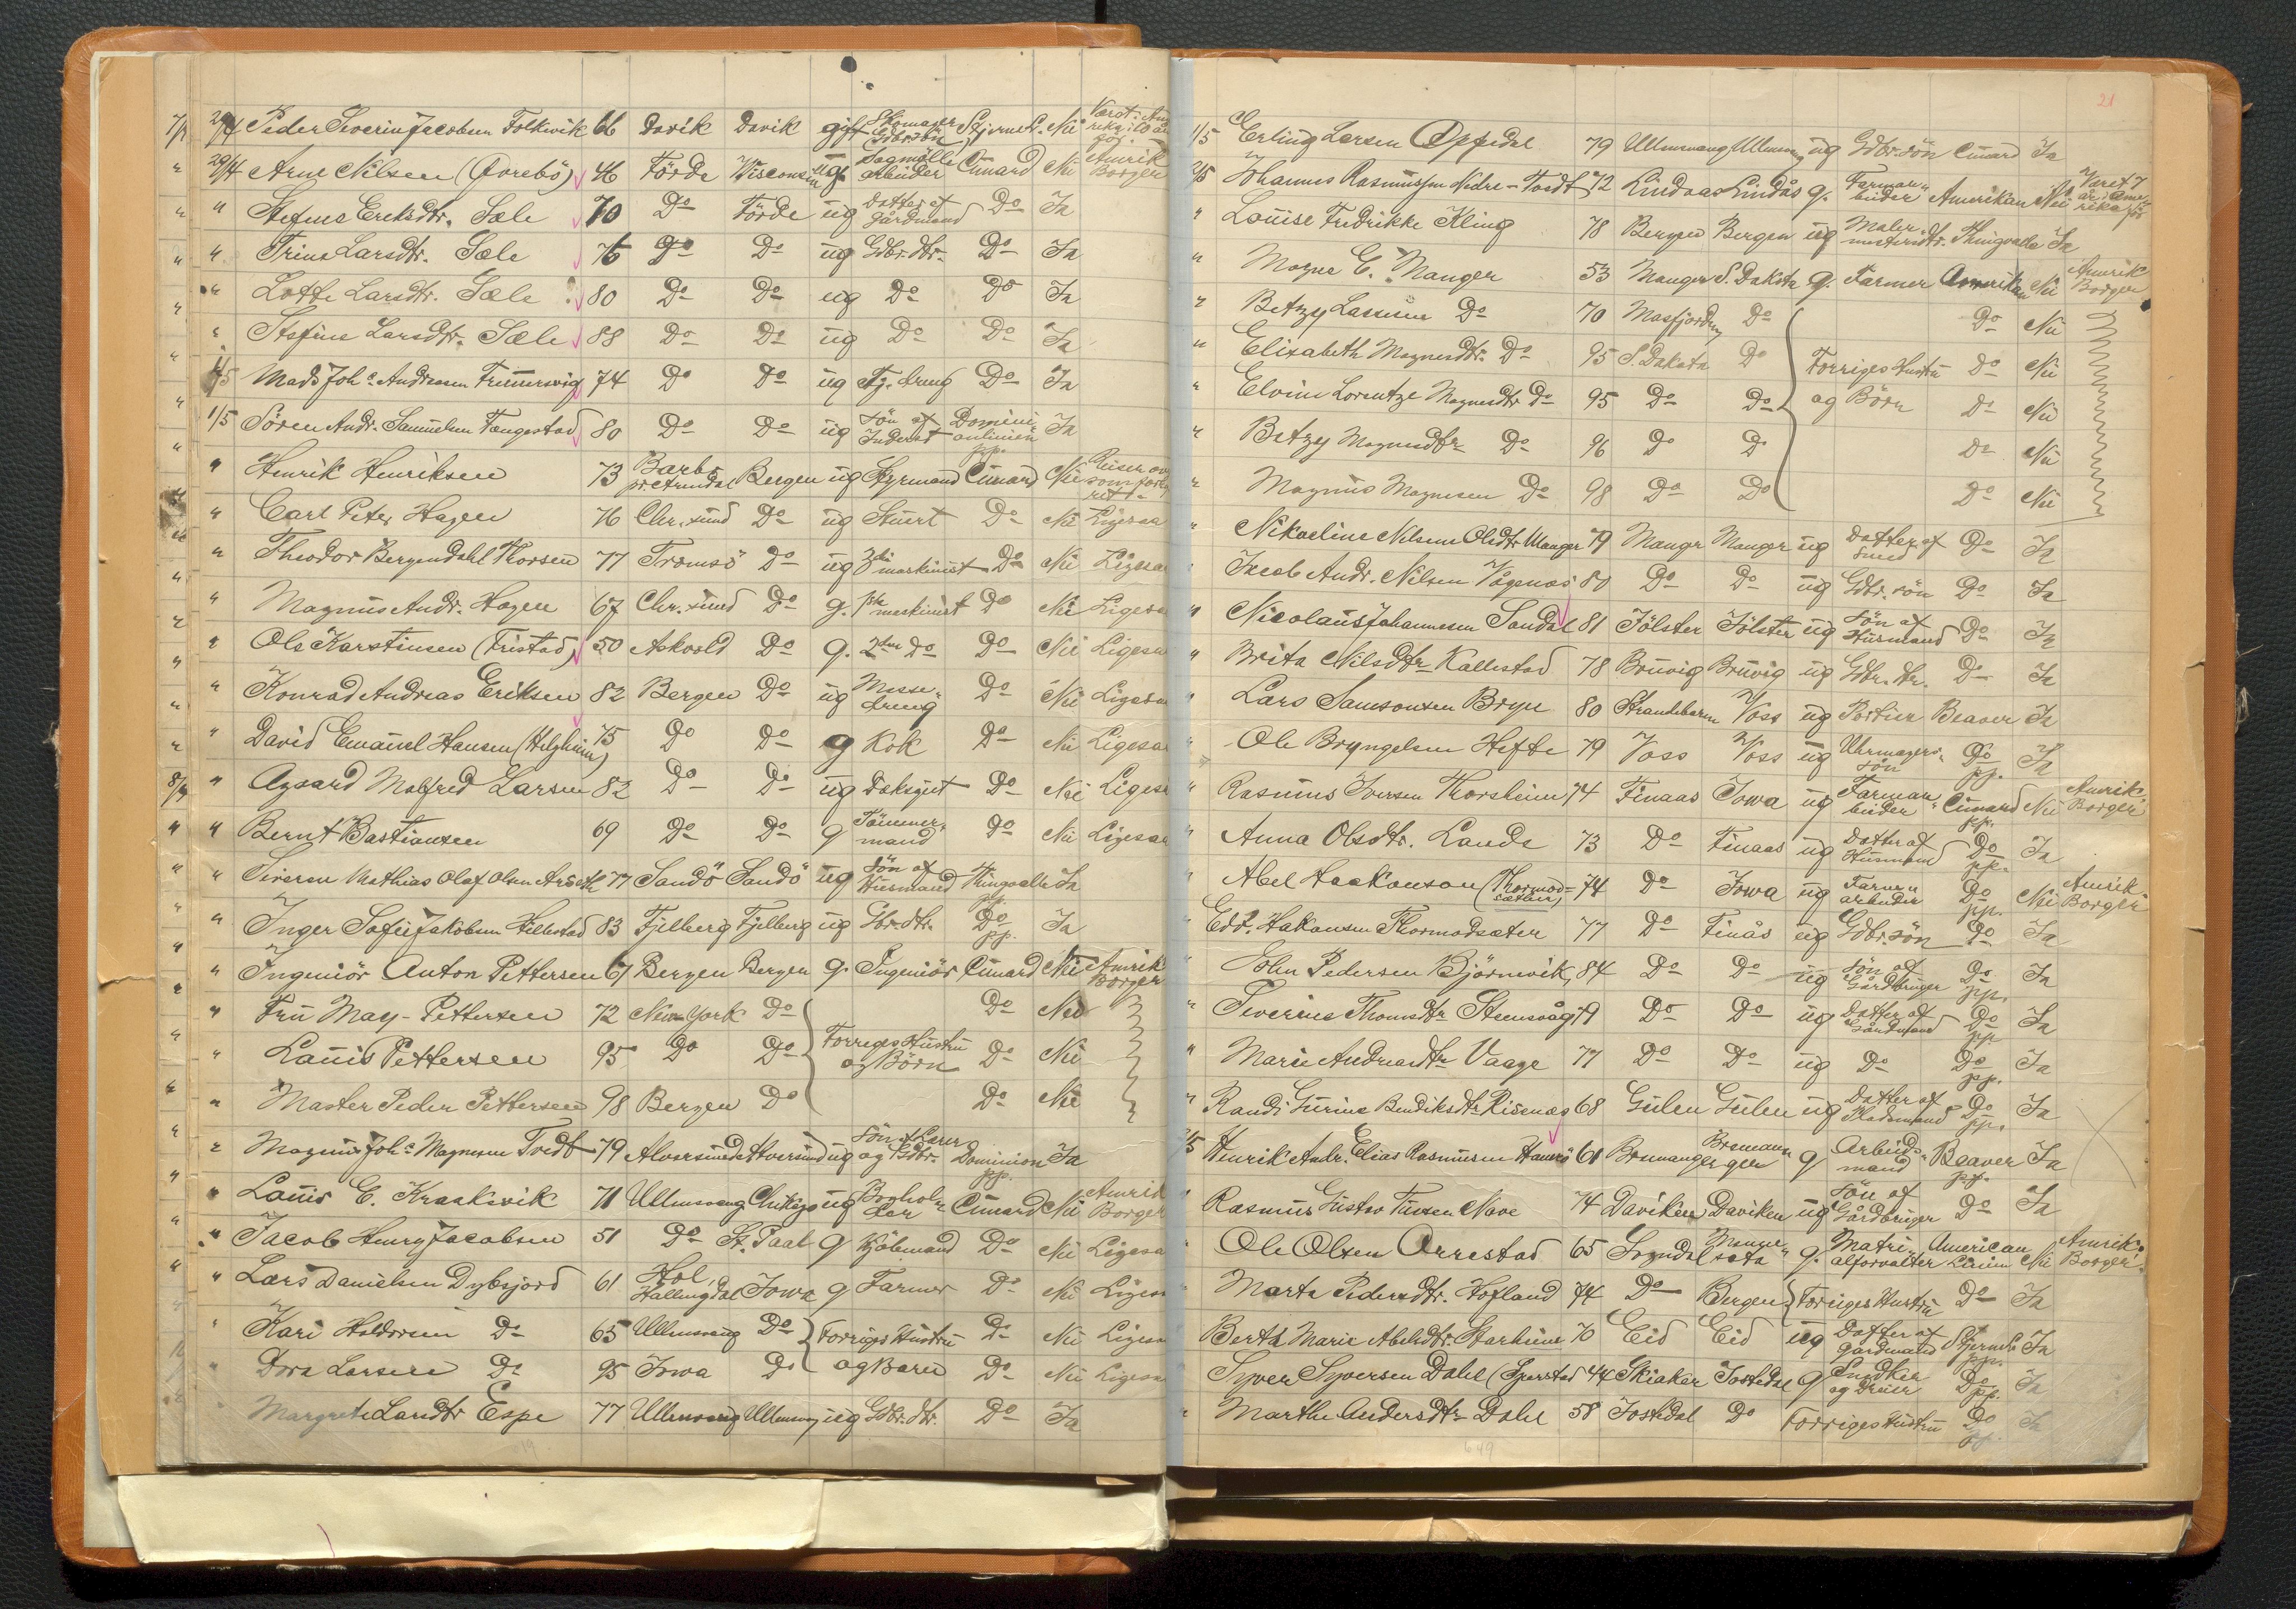 7/5 29/4 Peder Severin Jacobsen Folkevik 66 Davik Davik gift Skomager Gdbr.sön Stjernel. Nei Været i Ame rika i 10 år
" 29/4 Arne Nilsen (Övrebö) 46 Förde Wisconsin ug Sagmölle Arbeider Cunard Nei Amerik Borger
" " Stefine Eriksdtr. Sæle 70 Do Förde ug Datter af gårdmand Do Ja
" " Trine Larsdtr. Sæle 76 Do Do ug Gdbr. dtr. Do Ja
" " Lotte Larsdtr. Sæle 80 Do Do ug Do Do Ja
" " Stefine Larsdtr. Sæle 88 Do Do ug Do Do Ja
" 1/5 Mads Johs Andreasen 74 Do Do ug Tj. dreng Do Ja
" 1/5 Sören Andr. Samuelsen Fængestad 80 Do Do ug Sön af Inderst Domini onlinien pp. Ja
" " Henrik Henriksen 73 Barbo pr Arendal Bergen ug Styrmand Cunard Nei Reiser som
" " Carl Peter Hagen 76 Chr.sund Do ug Stuert Do Nei Ligesaa
" " Theodor Bergendahl Thorsen 77 Tromsö Do ug 3die maskinist Do Nei Ligesaa
" " Magnus Andr. Hagen 67 Chr.sund Do g. 1ste maskinist Do Nei Ligesaa
" " Ole Karstinsen (Fristad) 50 Askvold Do g. 2den Do Do Nei Ligesaa
" " Konrad Andreas Eriksen 82 Bergen Do ug Messe dreng Do Nei Ligesaa
" " David Emanuel Hansen (Helgheim) 75 Do Do g Kok Do Nei Ligesaa
8/5 " Agaard Malfred Larsen 82 Do Do ug Dæksgut Do Nei Ligesaa
" " Bernt Bastiansen 69 Do Do g Tömmer mand Do Nei Ligesaa
" " Siversen Mathias Olaf Olsen Arseth 77 Sandö Sandö ug Sön af Husmand Thingvalla pp. Ja
" " Inger Sofie Jakobsen Hillestad 83 Fjelberg Fjelberg ug Gbr. dtr. Do pp. Ja
" " Ingeniör Anton Pettersen 67 Bergen Bergen g. Ingeniör Cunard Nei Amerik Borger
" " Fru May-Pettersen 72 New York Do Do Nei
" " Louis Pettersen 95 Do Do Forriges Hustru og Börn Do Nei
" " Master Peder Pettersen 98 Bergen Do Do Nei
" " Magnus Johs Magnesen Tvedt 79 Alversund Alversund ug Sön af Lærer og Gdbr. Dominion pp. Ja
" " Louis E. Kraakevik 71 Ullensvang Chikago ug Boghol der Cunard Nei Amerik Borger
" " Jacob Henry Jacobsen 51 Do St. Paul g Kjöbmand Do Nei Ligesaa
" " Lars Danielsen Dybsjord 61 Hol, Hallingdal Iowa g Farmer Do Nei Ligesaa
" Kari Haldorsen Do 65 Ullensvang Do Forriges Hustru Do Nei Ligesaa
" Dora Larsen Do 95 Iowa Do og Barn Do Nei Ligesaa
Margrete Larsdtr Espe 77 Ullensvang Ullensvang ug Gdbr. dtr. Do Ja
21
1/5 Erling Larsen Oppedal 79 Ullensvang Ullensvang ug Gdbr. sön Cunard Ja
2/5 Johannes Rasmussen Nedre-Tvedt 72 Lindaas Lindås g. Farmar beider Amerikan Nei Været 7 år i Ame rika
" Louise Fredrikke Kling 78 Bergen Bergen ug Maler mesterdtr. Thingvalla Ja
" Magne E. Manger 53 Manger S. Dakota g. Farmer Amerikan Nei Amerik Borger
" Betzy Lassesen Do 70 Masfjorden Do Do Nei
" Elizabeth Magnesdtr. Do 95 S. Dakota Do Forriges Hustru Do Nei
" Elvine Lorentze Magnesdtr Do 95 Do Do og Börn Do Nei
" Betzy Magnesdtr Do 96 Do Do Do Nei
" Magnus Magnesen Do 98 Do Do Do Nei
" Nikoeline Nilsene Olsdtr Manger 79 Manger Manger ug Datter af Smed Do Ja
" Jacob Andr. Nilsen Vågenes 80 Do Do ug Gdbr. sön Do Ja
" Nicolaus Johannesen Sandal 81 Jölster Jölster ug Sön af Husmand Do Ja
" Brita Nilsdtr Kallestad 78 Bruvig Bruvig ug Gdbr. dtr. Do Ja
" Lars Samsonsen Bryn 80 Strandebarm Voss ug Portier Beaver Ja
" Ole Bryngelsen Hefte 79 Voss Voss ug Uhrmagers sön Do pp. Ja
" Rasmus Iversen Thorsheim 74 Finaas Iowa ug Farmar beider Cunard pp. Nei Amerik. Borger
" Anna Olsdtr. Lande 73 Do Finaas ug Datter af Husmand Do pp. Ja
" Abel Haakonson (Thormod= sæther) 74 Do Iowa ug Farm arbeider Do pp. Nei Amerik. Borger
" Edv. Hakonsen Thormodsæter 77 Do Finås ug Gdbr. sön Do Ja
" John Pedersen Björnevik 84 Do Do ug Sön af Gårdbruger Do pp. Ja
" Severine Thomsdtr Stensvåg 79 Do Do ug Datter af Gårdmand Do pp Ja
" Marie Andreasdtr Vaage 77 Do Do ug Do Do pp. Ja
" Randi Gurine Bendiksdtr Risenæs 68 Gulen Gulen ug Datter af Pladsmand Do pp. Ja
2/5 Henrik Andr. Elias Rasmussen 61 Bremanger Bremanger g Arbeids mand Beaver pp. Ja
" Rasmus Gustav Nave 74 Daviken Daviken ug Sön af Gårdbruger Do Ja
" Ole Olsen Orrestad 65 Sogndal g. Matri alforvalter American Linien Nei Amerik. Borger
" Marta Pedersdtr. Hofland 74 Do Bergen Forriges Hustru Do Ja
Berth Marie Abelsdtr. Starheim 70 Eid Eid ug Datter af gårdmand Stjernel. pp. Ja
Syver Syversen Dahl 44 Skiaker Jostedal g Snedker og Dreier Do pp. Ja
" Marthe Andersdtr Dahl 58 Jostedal Do Forriges Hustru Do pp. Ja
649